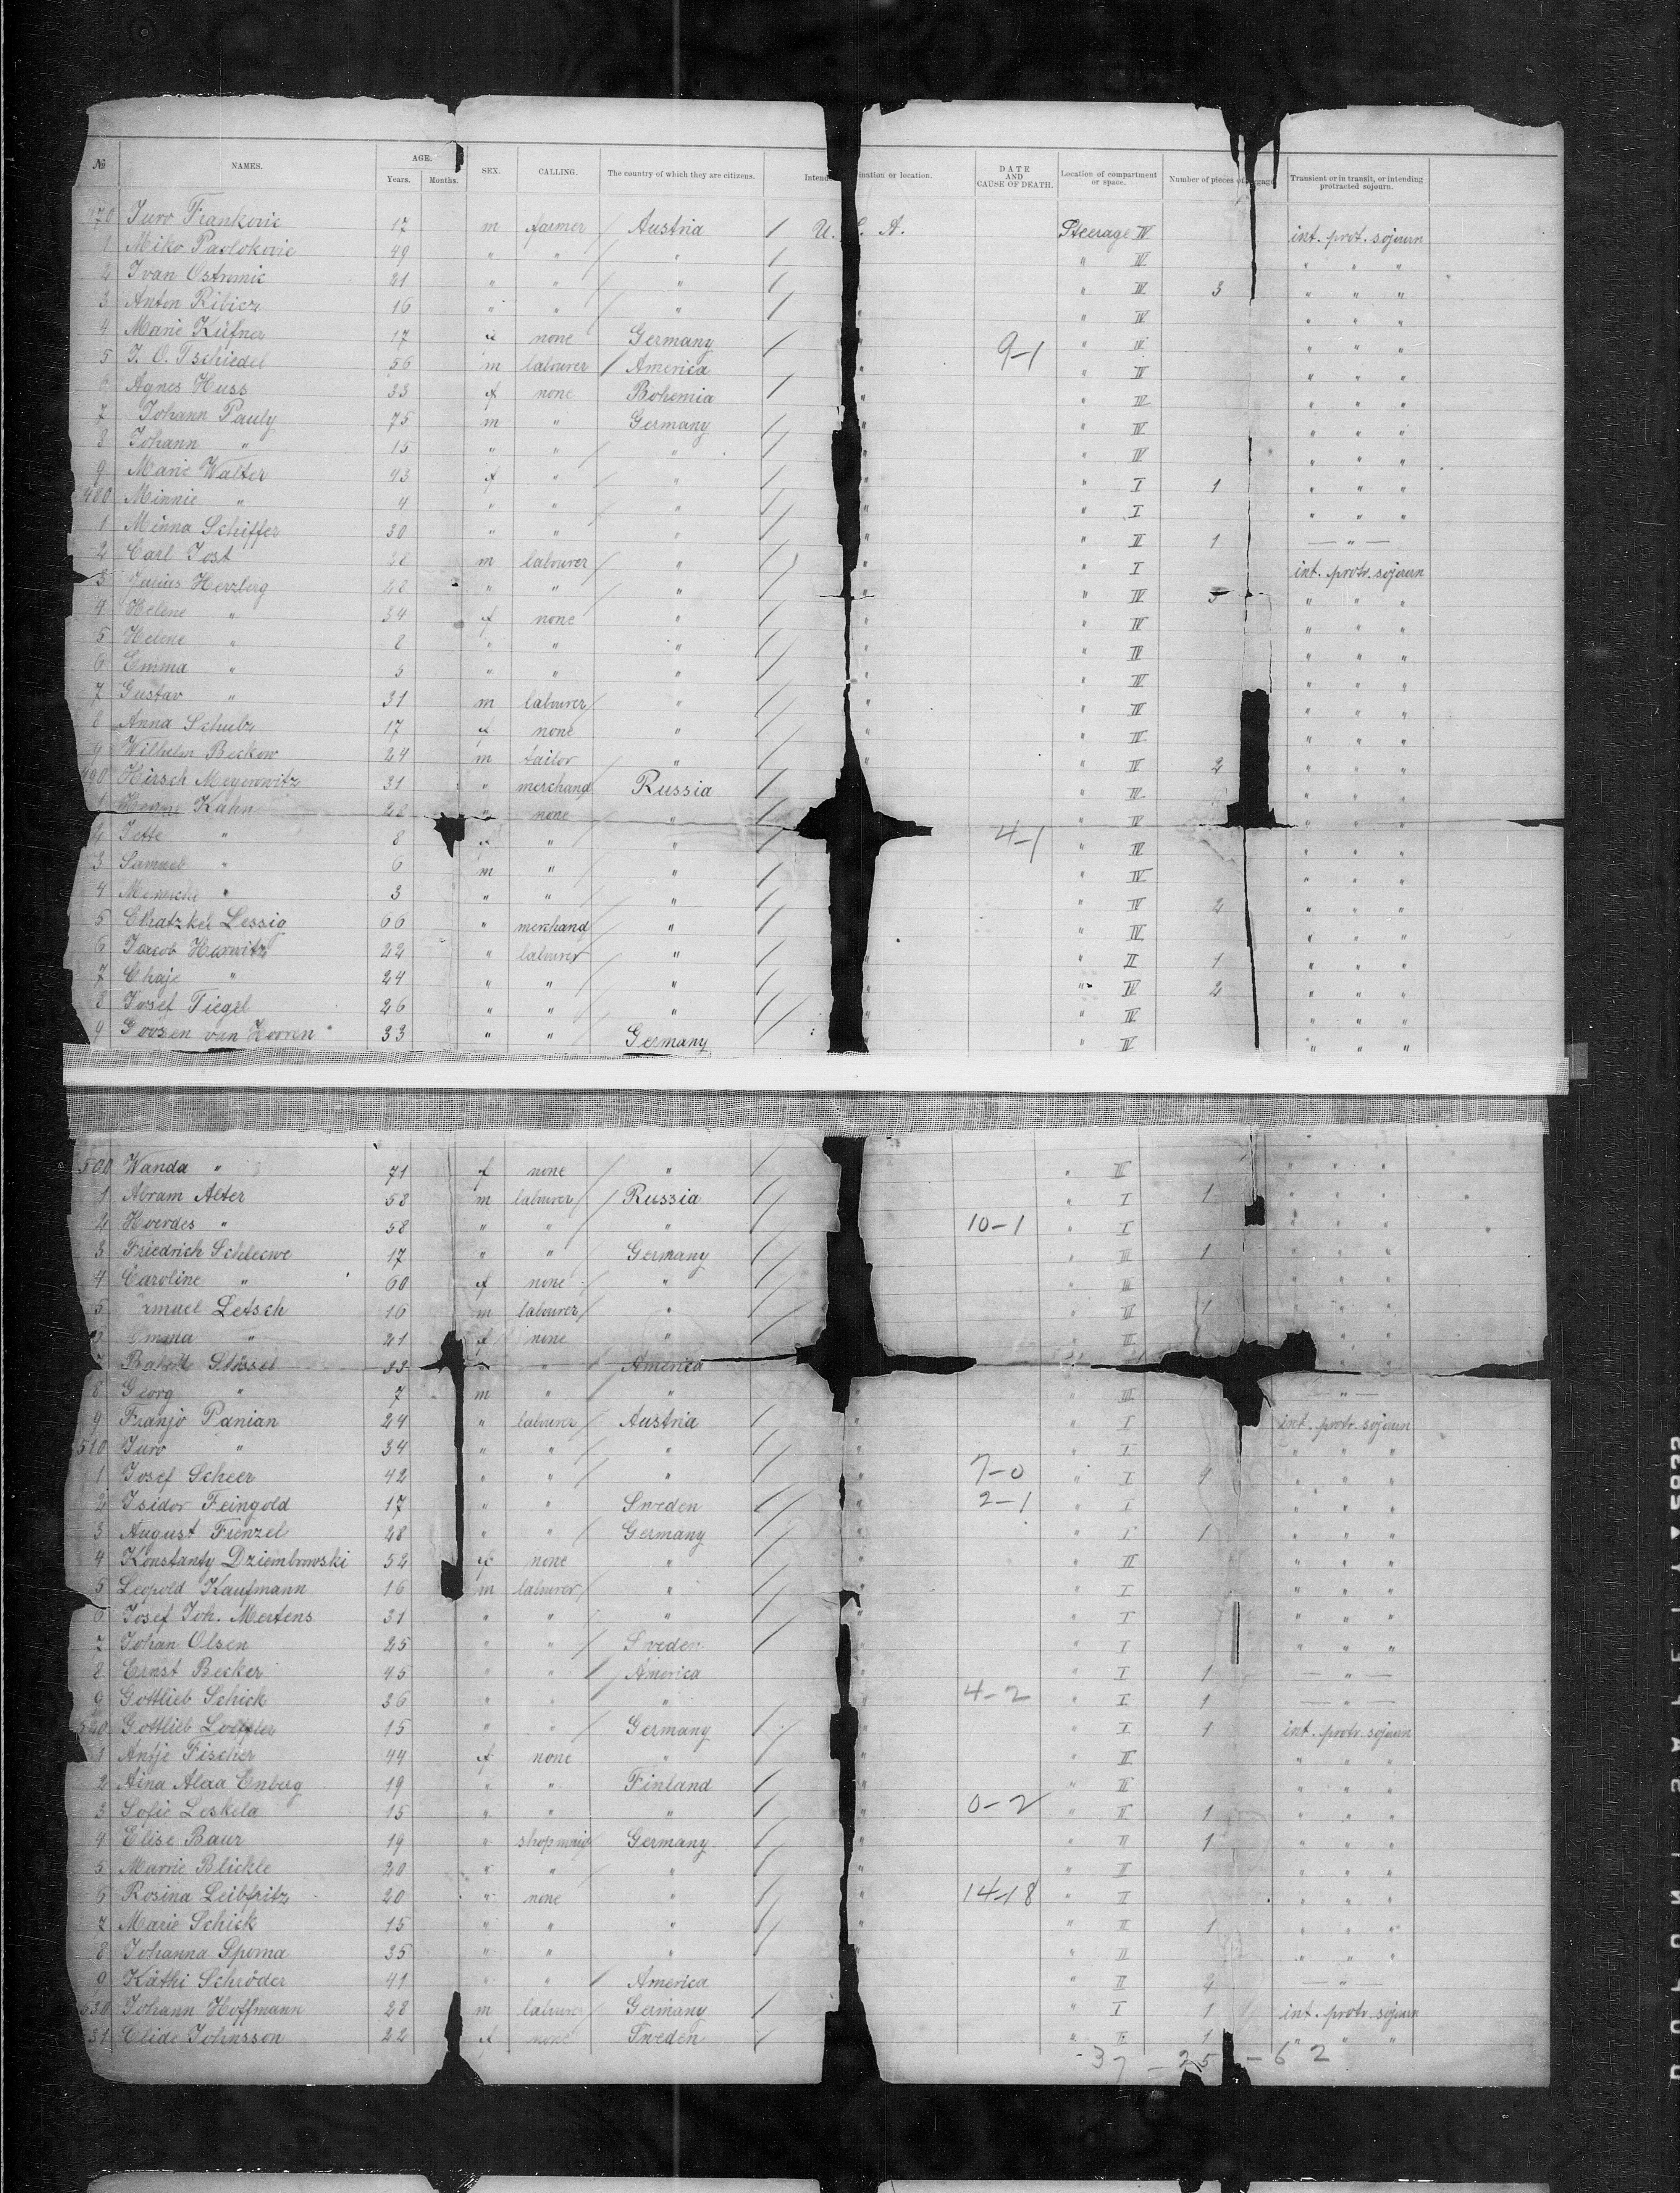 № NAMES. AGE. Years. Months. SEX. CALLING. The country of which they are citizens. Intend ination or location. DATE AND CAUSE OF DEATH. Location of compartment or space. Number of pieces of Transient or in transit, or intending protracted sojourn.
470 Juro Frankovic 17 m farmer Austria U. S. A. Steerage IV int. prot. sojourn
1 Miko Pavlokovic 49 " " " " IV " " "
2 Ivan Ostronic 21 " " " " IV 3 " " "
3 Anton Ribicz 16 " " " " " IV " " "
4 Marie Küfner 17 f none Germany " IV " " "
5 J. O. Tschiedel 56 m labourer America 9-1 " " IV " " "
6 Agnes Huss 33 f none Bohemia " " IV " " "
7 Johann Pauly 75 m " Germany " " IV " " "
8 Johann " 15 " " " " " IV " " "
9 Marie Walter 43 f " " " " I 1 " " "
480 Minnie " 4 " " " " " I " " "
1 Minna Schiffer 30 " " " " " II 1 — " —
2 Carl Jost 28 m labourer " " " I int. protr. sojourn
3 Julius Herzberg 48 " " " " " IV " " "
4 Helene " 34 f none " " " IV " " "
5 Helene " 8 " " " " " IV " " "
6 Emma " 5 " " " " " IV " " "
7 Gustav " 31 m labourer " " " IV " " "
8 Anna Schulz 17 f none " " " IV " " "
9 Wilhelm Beckow 24 m tailor " " " IV 2 " " "
490 Hirsch Meyerowitz 31 " merchand Russia " IV " " "
1 Kahn 28 " none " " IV " " "
2 Jette " 8 f " " 4-1 " IV " " "
3 Samuel " 6 m " " " IV " " "
4 " 3 " " " " IV 2 " " "
5 Chatzkel Lessig 66 " merchand " " IV " " "
6 Jacob Harwitz 22 " labourer " " " II 1 " " "
7 Chaje " 24 " " " " " IV 2 " " "
8 Josef Tiegel 26 " " " " " IV " " "
9 Goosen van Horren 33 " " Germany " " IV " " "
500 Wanda " 71 f none " " III " " "
1 Abram Alter 58 m labourer Russia " I 1 " " "
2 Hoerdes " 58 " " " 10-1 " I " " "
3 Friedrich Scheewe 17 " " Germany " III 1 " " "
4 Caroline " 60 f none " " III " " "
5 amuel Letsch 16 m labourer " " III 1 " " "
6 Emma " 21 f none " " III " "
7 Stössel 33 " " America " "
8 Georg " 7 m " " " " III — " —
9 Franjo Panian 24 " labourer Austria " " I int. protr. sojourn
510 Juro " 34 " " " " " I " " "
1 Josef Scheer 42 " " " " 7-0 " I " " "
2 Isidor Feingold 17 " " Sweden " 2-1 " I " " "
3 August Funzel 28 " " Germany " " I 1 " " "
4 Konstanty Dziembrowski 52 f none " " " II " " "
5 Leopold Kaufmann 16 m labourer " " I " " "
6 Josef Joh. Mertens 31 " " " " " I " " "
7 Johan Olsen 25 " " Sweden " " I " " "
8 Ernst Becker 45 " " America " " I 1 — " —
9 Gottlieb Schick 36 " " " " 4-2 " I 1 — " —
520 Gottlieb Loeffler 15 " " Germany " " I 1 int. protr. sojourn
1 Antje Fischer 44 f none " " " II " " "
2 Aina Alexa Enberg 19 " " Finland " " II " " "
3 Sofie Leskela 15 " " " " 0-2 " II 1 " " "
4 Elise Baur 19 " shopmaid Germany " " II 1 " " "
5 Marrie Blickle 20 " " " " " II " " "
6 Rosina Leibfritz 20 " none " " 14-18 " II " " "
7 Marie Schick 15 " " " " " II 1 " " "
8 Johanna Sporna 35 " " " " II " " "
9 Käthi Schröder 41 " " America " II 2 — " —
530 Johann Hoffmann 28 m labourer Germany " I 1 int. protr. sojourn
531 Elide Johnsson 22 f none Sweden " II 1 " " "
37 - 25 - 62